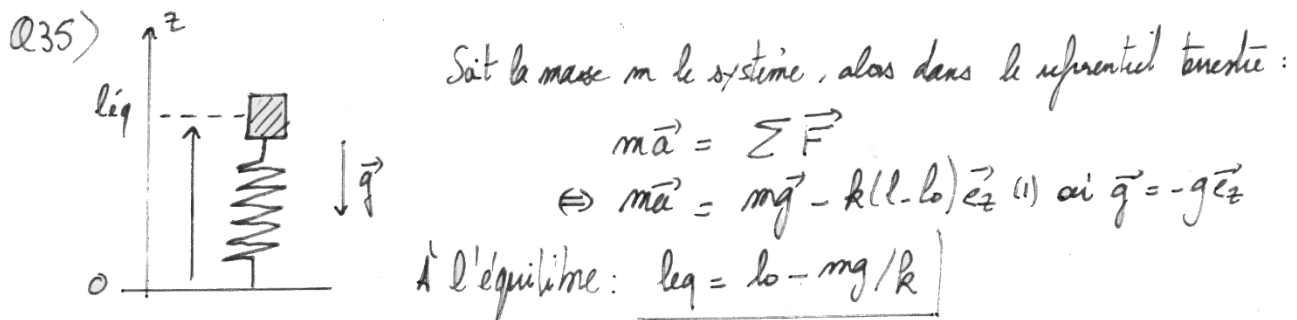 Q35)
z
Soit la masse m le système, alors dans le référentiel terrestre :
léq
m\vec{a} = Σ \vec{F}
\vec{g}
⇔ m\vec{a} = m\vec{g} - k(l-l0)\vec{e_z} (1) où \vec{g} = -g\vec{e_z}
0
À l'équilibre : leq = l0 - mg/k